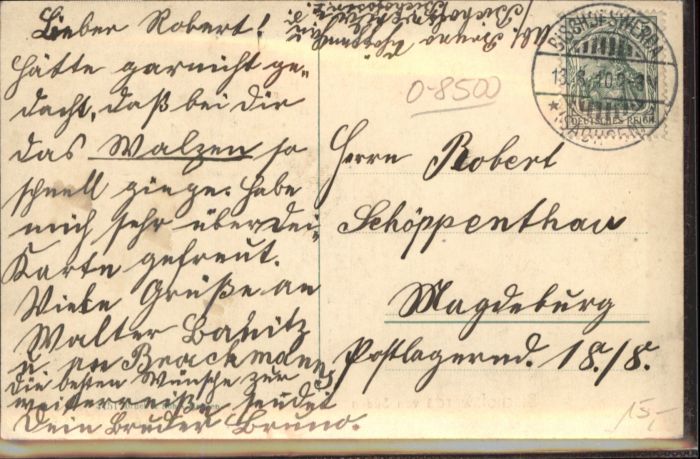 Lieber Robert!
Hätte garnicht ge-
dacht, daß bei dir
das Walzen so
schnell ginge. Habe
mich sehr über Dei-
Karte gefreut.
Viele Grüße an
Walter Banitz
u. an Brackmann
die besten Wünsche zur
weiterreiße sendet
Dein Bruder Bruno.
BISCHOFSWERDA
DEUTSCHES REICH
0-8500
Herrn Robert
Schöppenthau
Magdeburg
Postlagernd. 18./8.
15,-